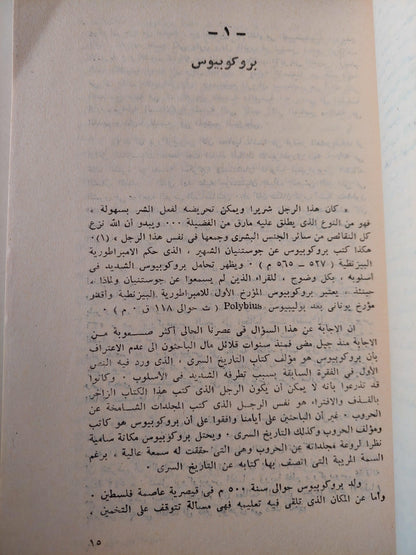 - ١ -
بروكوبيوس
« كان هذا الرجل شريرا ويمكن تحريضه لفعل الشر بسهولة ،
فهو من النوع الذى يطلق عليه مارق من الفضيلة ٠٠٠ ويبدو أن الله نزع
كل النقائص من سائر الجنس البشرى وجمعها فى نفس هذا الرجل ، (١)
هكذا كتب بروكوبيوس عن جوستنيان الشهير ، الذى حكم الامبراطورية
البيزنطية ( ٥٢٧ – ٥٦٥ م ) ٠ ويظهر تحامل بروكوبيوس الشديد فى
أسلوبه ، بكل وضوح ، للقراء الذين لم يسمعوا عن جوستنيان ولماذا ،
حينئذ ، يعتبر بروكوبيوس المؤرخ الأول للامبراطورية البيزنطية وأقدر
مؤرخ يونانى بعد بوليبيوس Polybius ( ت حوالى ١١٨ ق ٠ م ) ٠
ان الاجابة عن هذا السؤال فى عصرنا الحالى أكثر صعوبة من
الاجابة منذ جيل مضى فمنذ سنوات قلائل مال الباحثون الى عدم الاعتراف
بأن بروكوبيوس هو مؤلف كتاب التاريخ السرى ، الذى ورد فيه النص
فى الفقرة السابقة بسبب تطرفه الشديد فى الأسلوب ٠ وكانوا
قد تذرعوا بأنه لا يمكن أن يكون الرجل الذى كتب هذا الكتاب الزاخر
بالقذف والافتراء هو نفس الرجل الذى كتب المجلدات الشامخة عن
الحروب ٠ غير أن الباحثين على أيامنا وافقوا على أن بروكوبيوس هو كاتب
ومؤلف الحروب وكذلك التاريخ السرى ٠ ويحتل بروكوبيوس مكانة سامية
نظرا لروعة مجلداته عن الحروب وهى التى حققت له سمعة عالية ، برغم
السمة المريبة التى اتصف بها كتابه عن التاريخ السرى ٠
ولد بروكوبيوس حوالى سنة ٥٠٠ م فى قيصرية عاصمة فلسطين ٠
وأما عن المكان الذى تلقى فيه تعليمه فهى مسألة تتوقف على التخمين ،
١٥